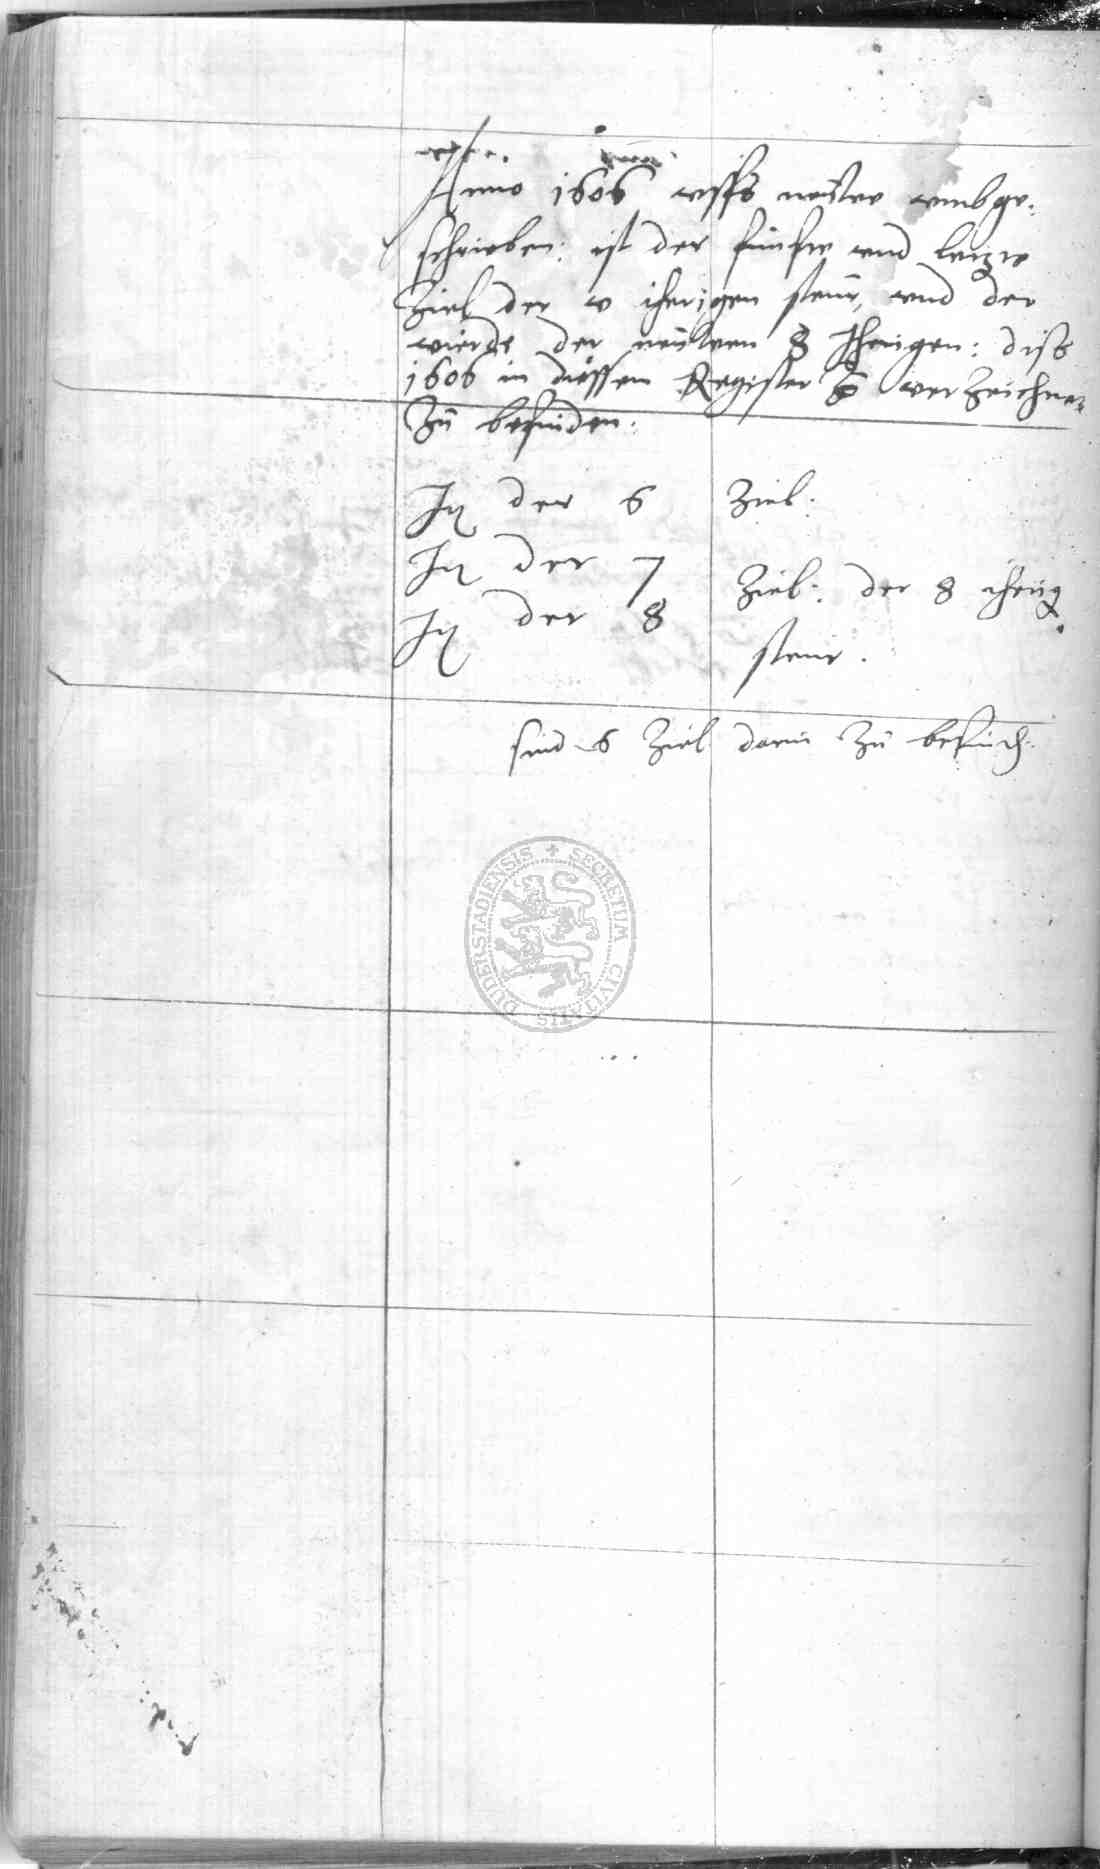 Anno 1606 uffs neuwe umbge-
schrieben: ist der funfte und letzte
Ziel der v iherigen steur, und der
vierde der neuwen 8 Jherigen: diss
1606 in diessem Register verzeichnet
zu befinden.
In der 6 Ziel.
In der 7 Ziel: der 8 iherig
In der 8 steur.
sind 6 Ziel darin zu befind.
DUDERSTADIENSIS + SECRETUM CIVITATIS